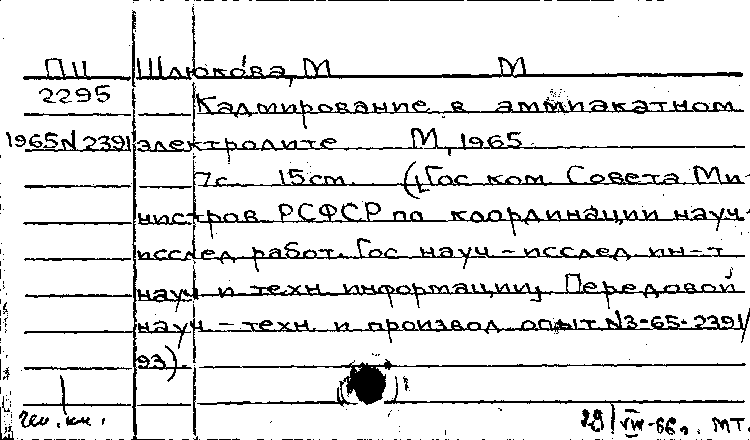 ПЦ Шлюкова, М М
2295 Кадмирование в аммиакатном
1965 N 2391 электролите М, 1965
7с. 15 см. (Гос ком Совета Ми-
нистров РСФСР по координации науч-
исслед работ. Гос науч-исслед ин-т
науч и техн информации, Передовой
науч-техн и производ опыт N3-65-2391/
93).
29/VIII-66г. МТ.